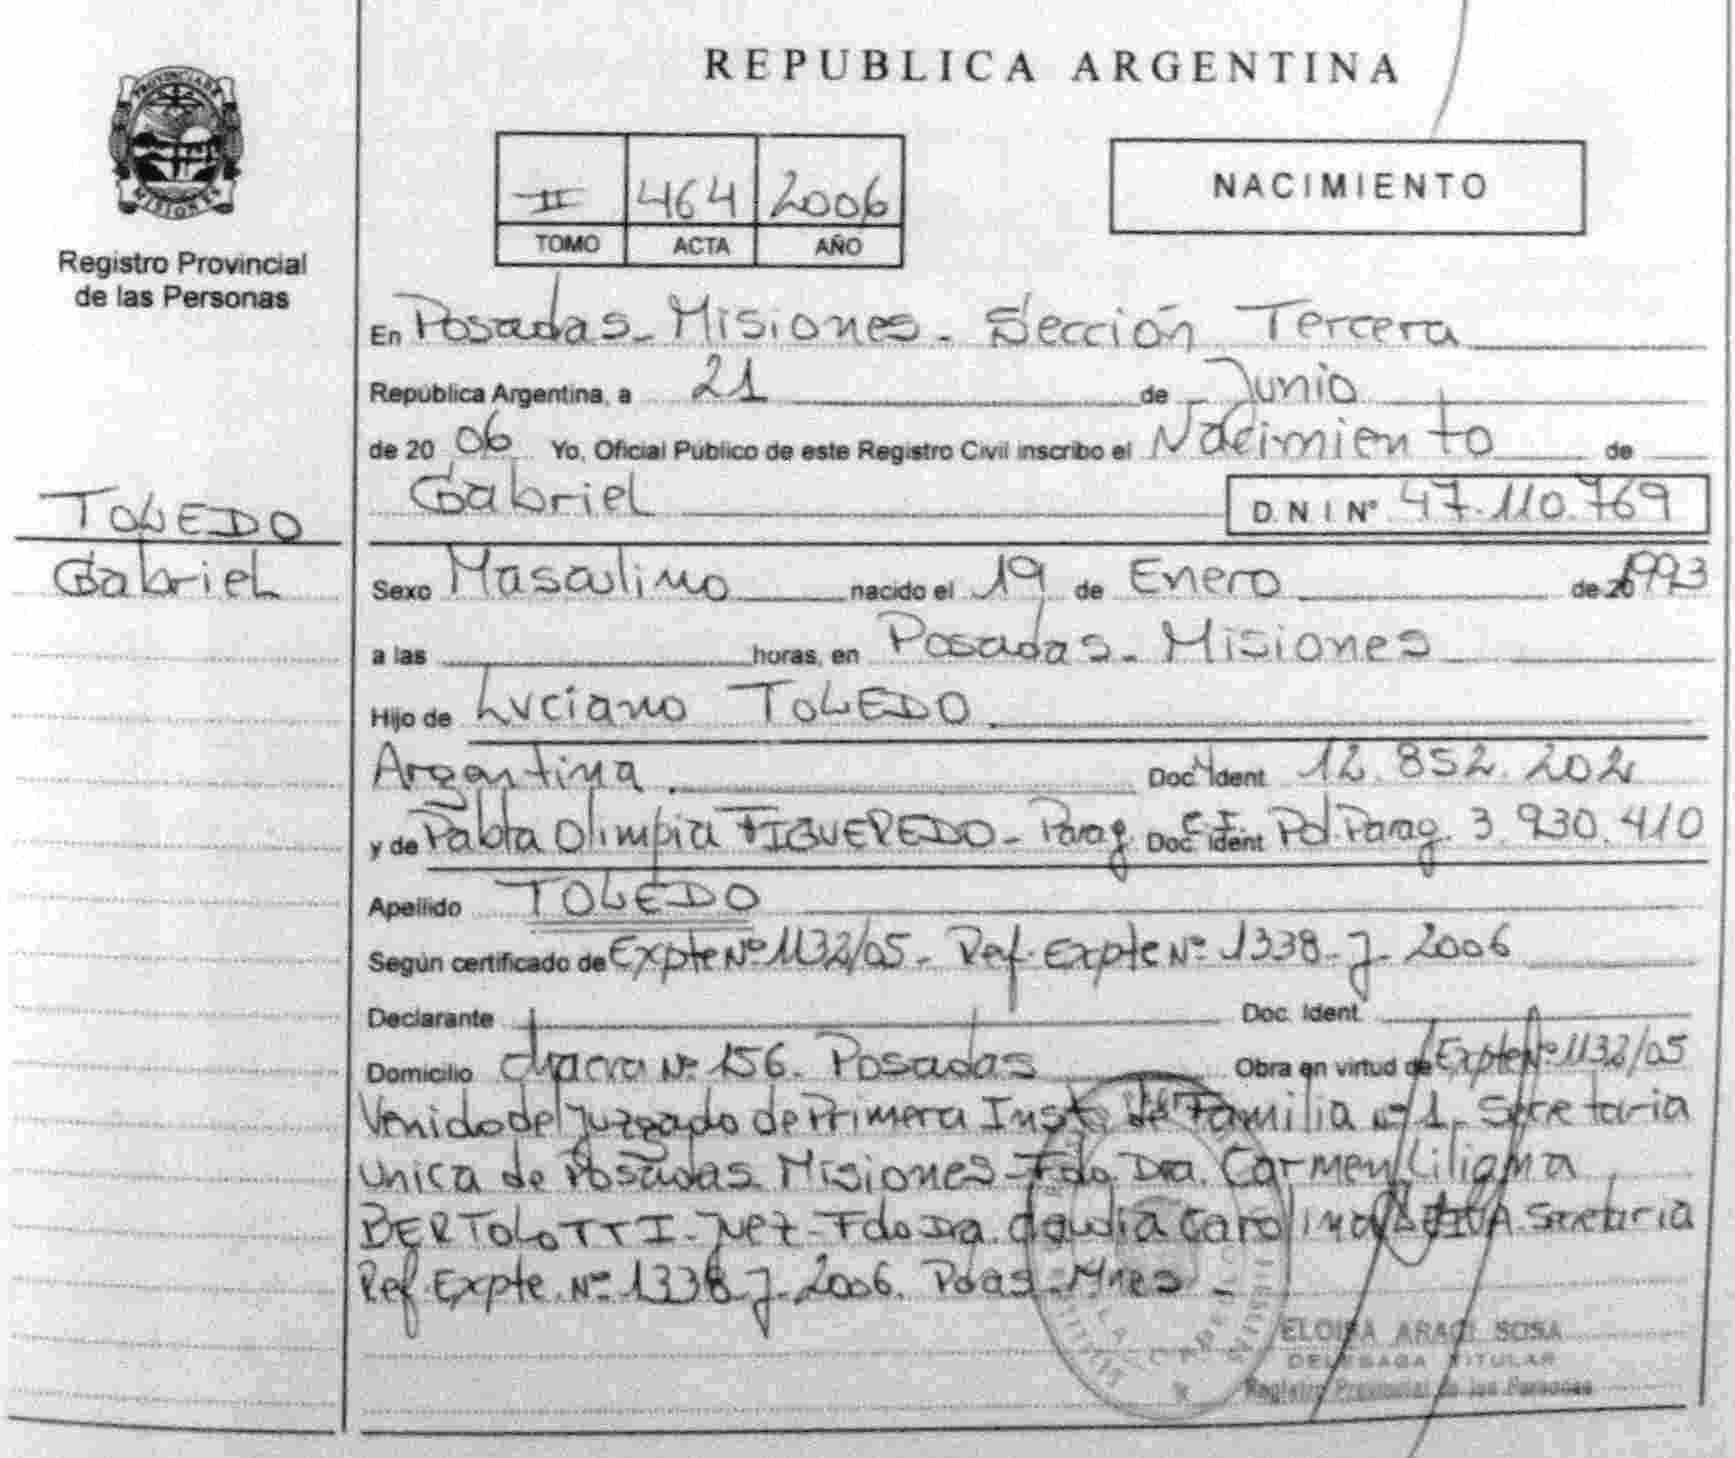 REPUBLICA ARGENTINA
PROVINCIA DE
MISIONES
Registro Provincial
de las Personas
II 464 2006
TOMO ACTA AÑO
NACIMIENTO
En Posadas - Misiones - Sección Tercera
República Argentina, a 21 de Junio
de 20 06 Yo, Oficial Público de este Registro Civil inscribo el Nacimiento de
Gabriel D.N I Nº 47.110.769
TOLEDO
Gabriel
Sexo Masculino nacido el 19 de Enero de 20 1993
a las horas, en Posadas - Misiones
Hijo de Luciano TOLEDO
Argentina Doc. Ident 12.852.202
y de Pabla Olimpia FIGUEREDO - Parag. Doc. Ident C.I. Pol. Parag. 3.930.410
Apellido TOLEDO
Según certificado de Expte Nº 1132/05 - Ref. Expte Nº 1338 - J - 2006
Declarante Doc. Ident.
Domicilio Chacra Nº 156. Posadas Obra en virtud de Expte Nº 1132/05
Venido del Juzgado de Primera Inst. de Familia nº 1 - Secretaria
Unica de Posadas Misiones - Fdo. Dra. Carmen Liliana
BERTOLOTTI - Juez - Fdo Dra. Claudia Carolina Secretaria
Ref. Expte. Nº 1338 - J - 2006. Pdas - Mnes -
ELOISA ARACI SOSA
DELEGADA TITULAR
Registro Provincial de las Personas